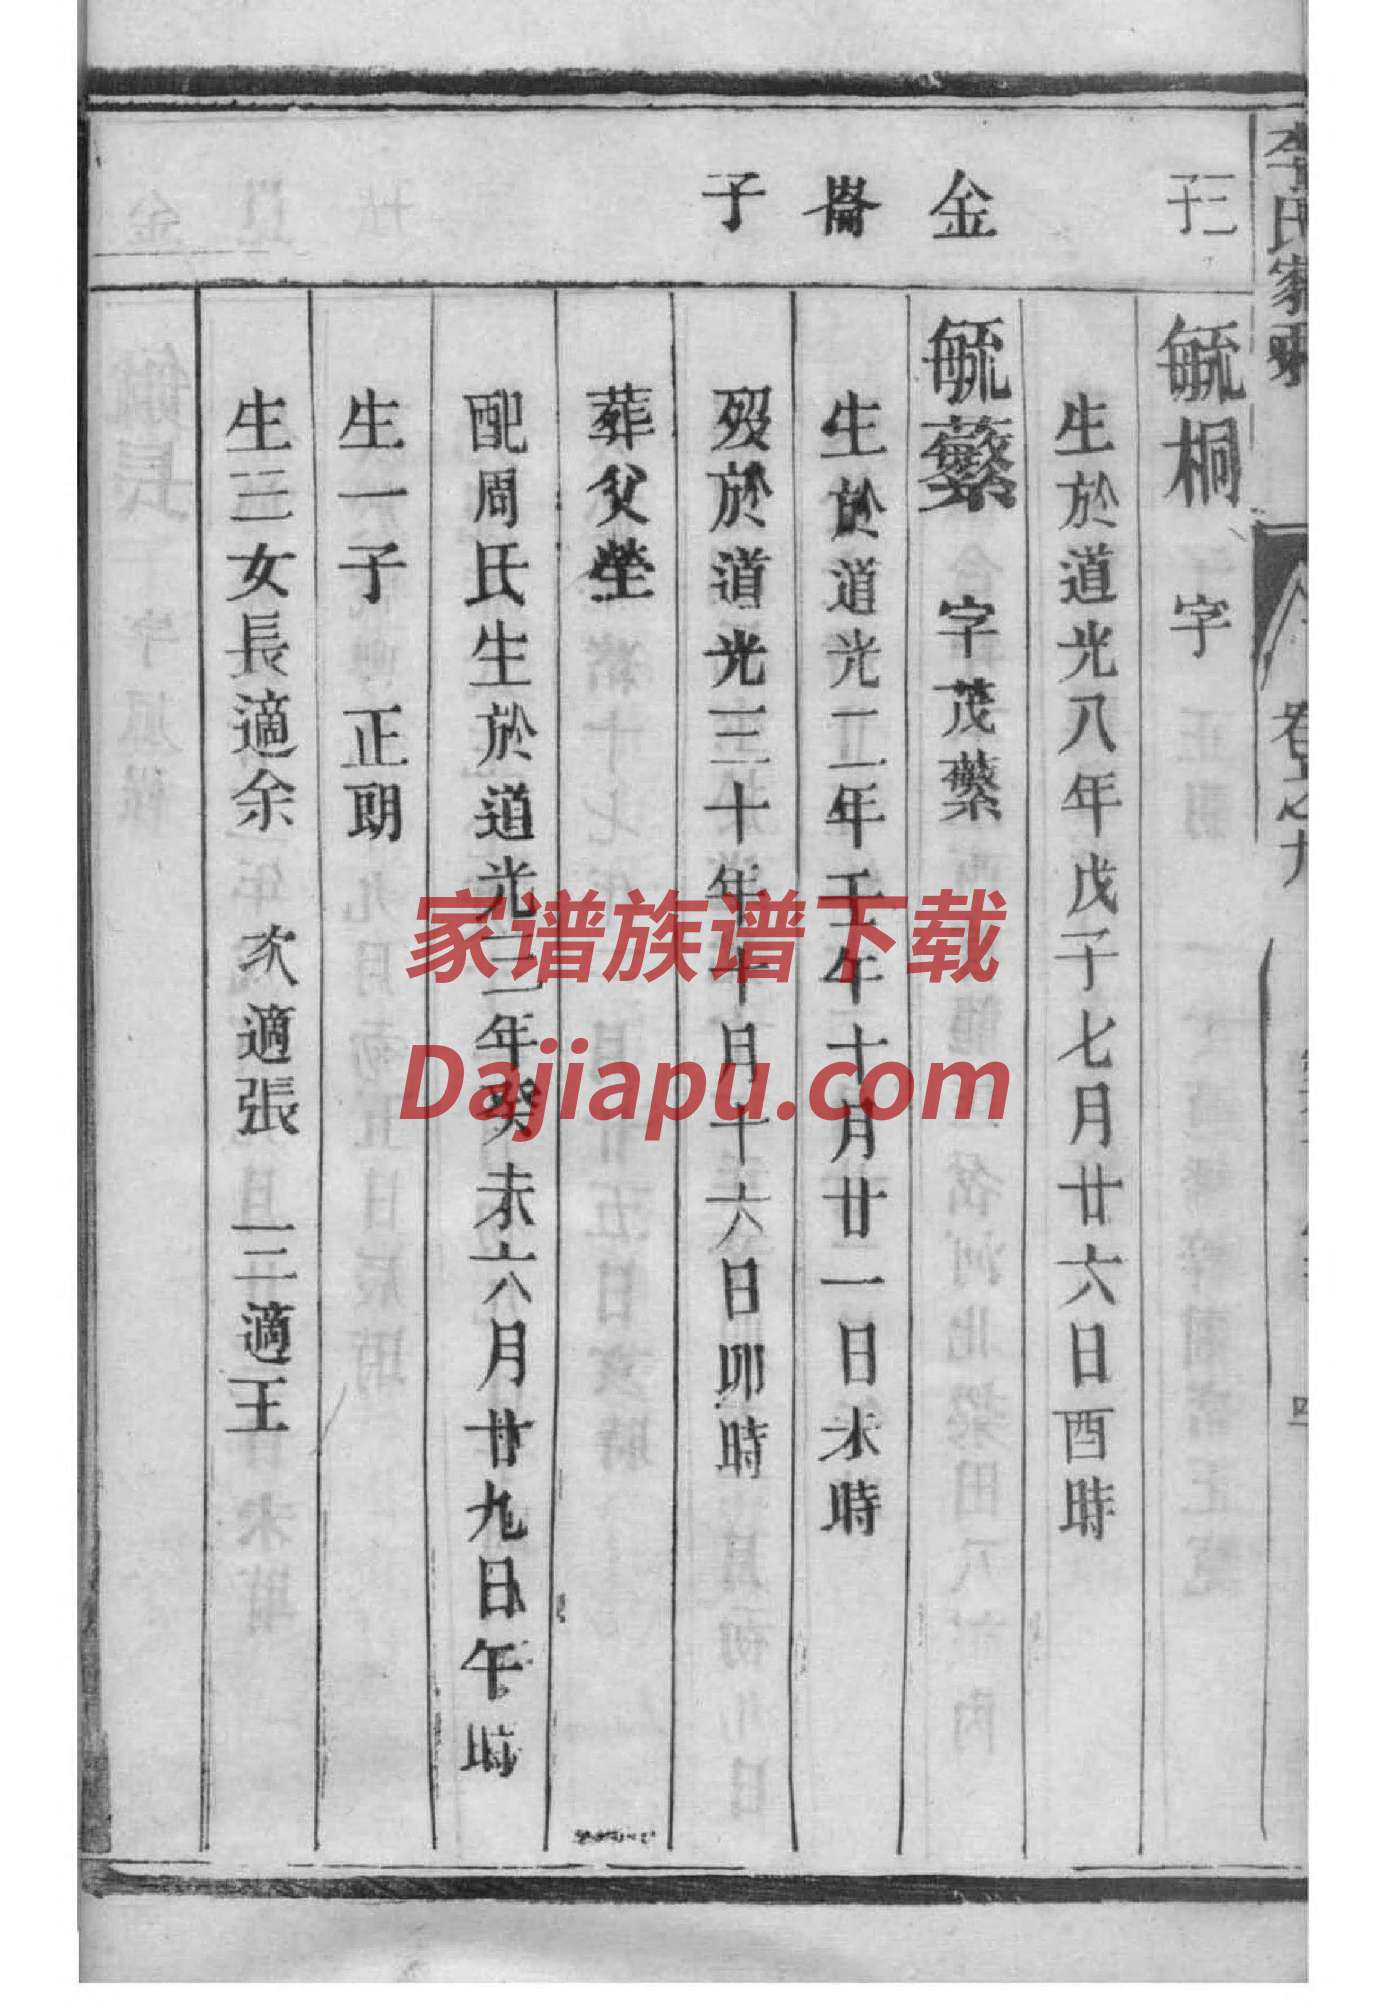 李氏家乘 卷之九
三子
毓桐 字
生於道光八年戊子七月廿六日酉時
金
毓蘩 字茂蘩
崙
生於道光二年壬午十月廿一日未時
子
歿於道光三十年十月十六日卯時
葬父塋
配周氏生於道光三年癸未六月廿九日午時
生一子 正朗
生三女長適余 次適張 三適王
家谱族谱下载
Dajiapu.com